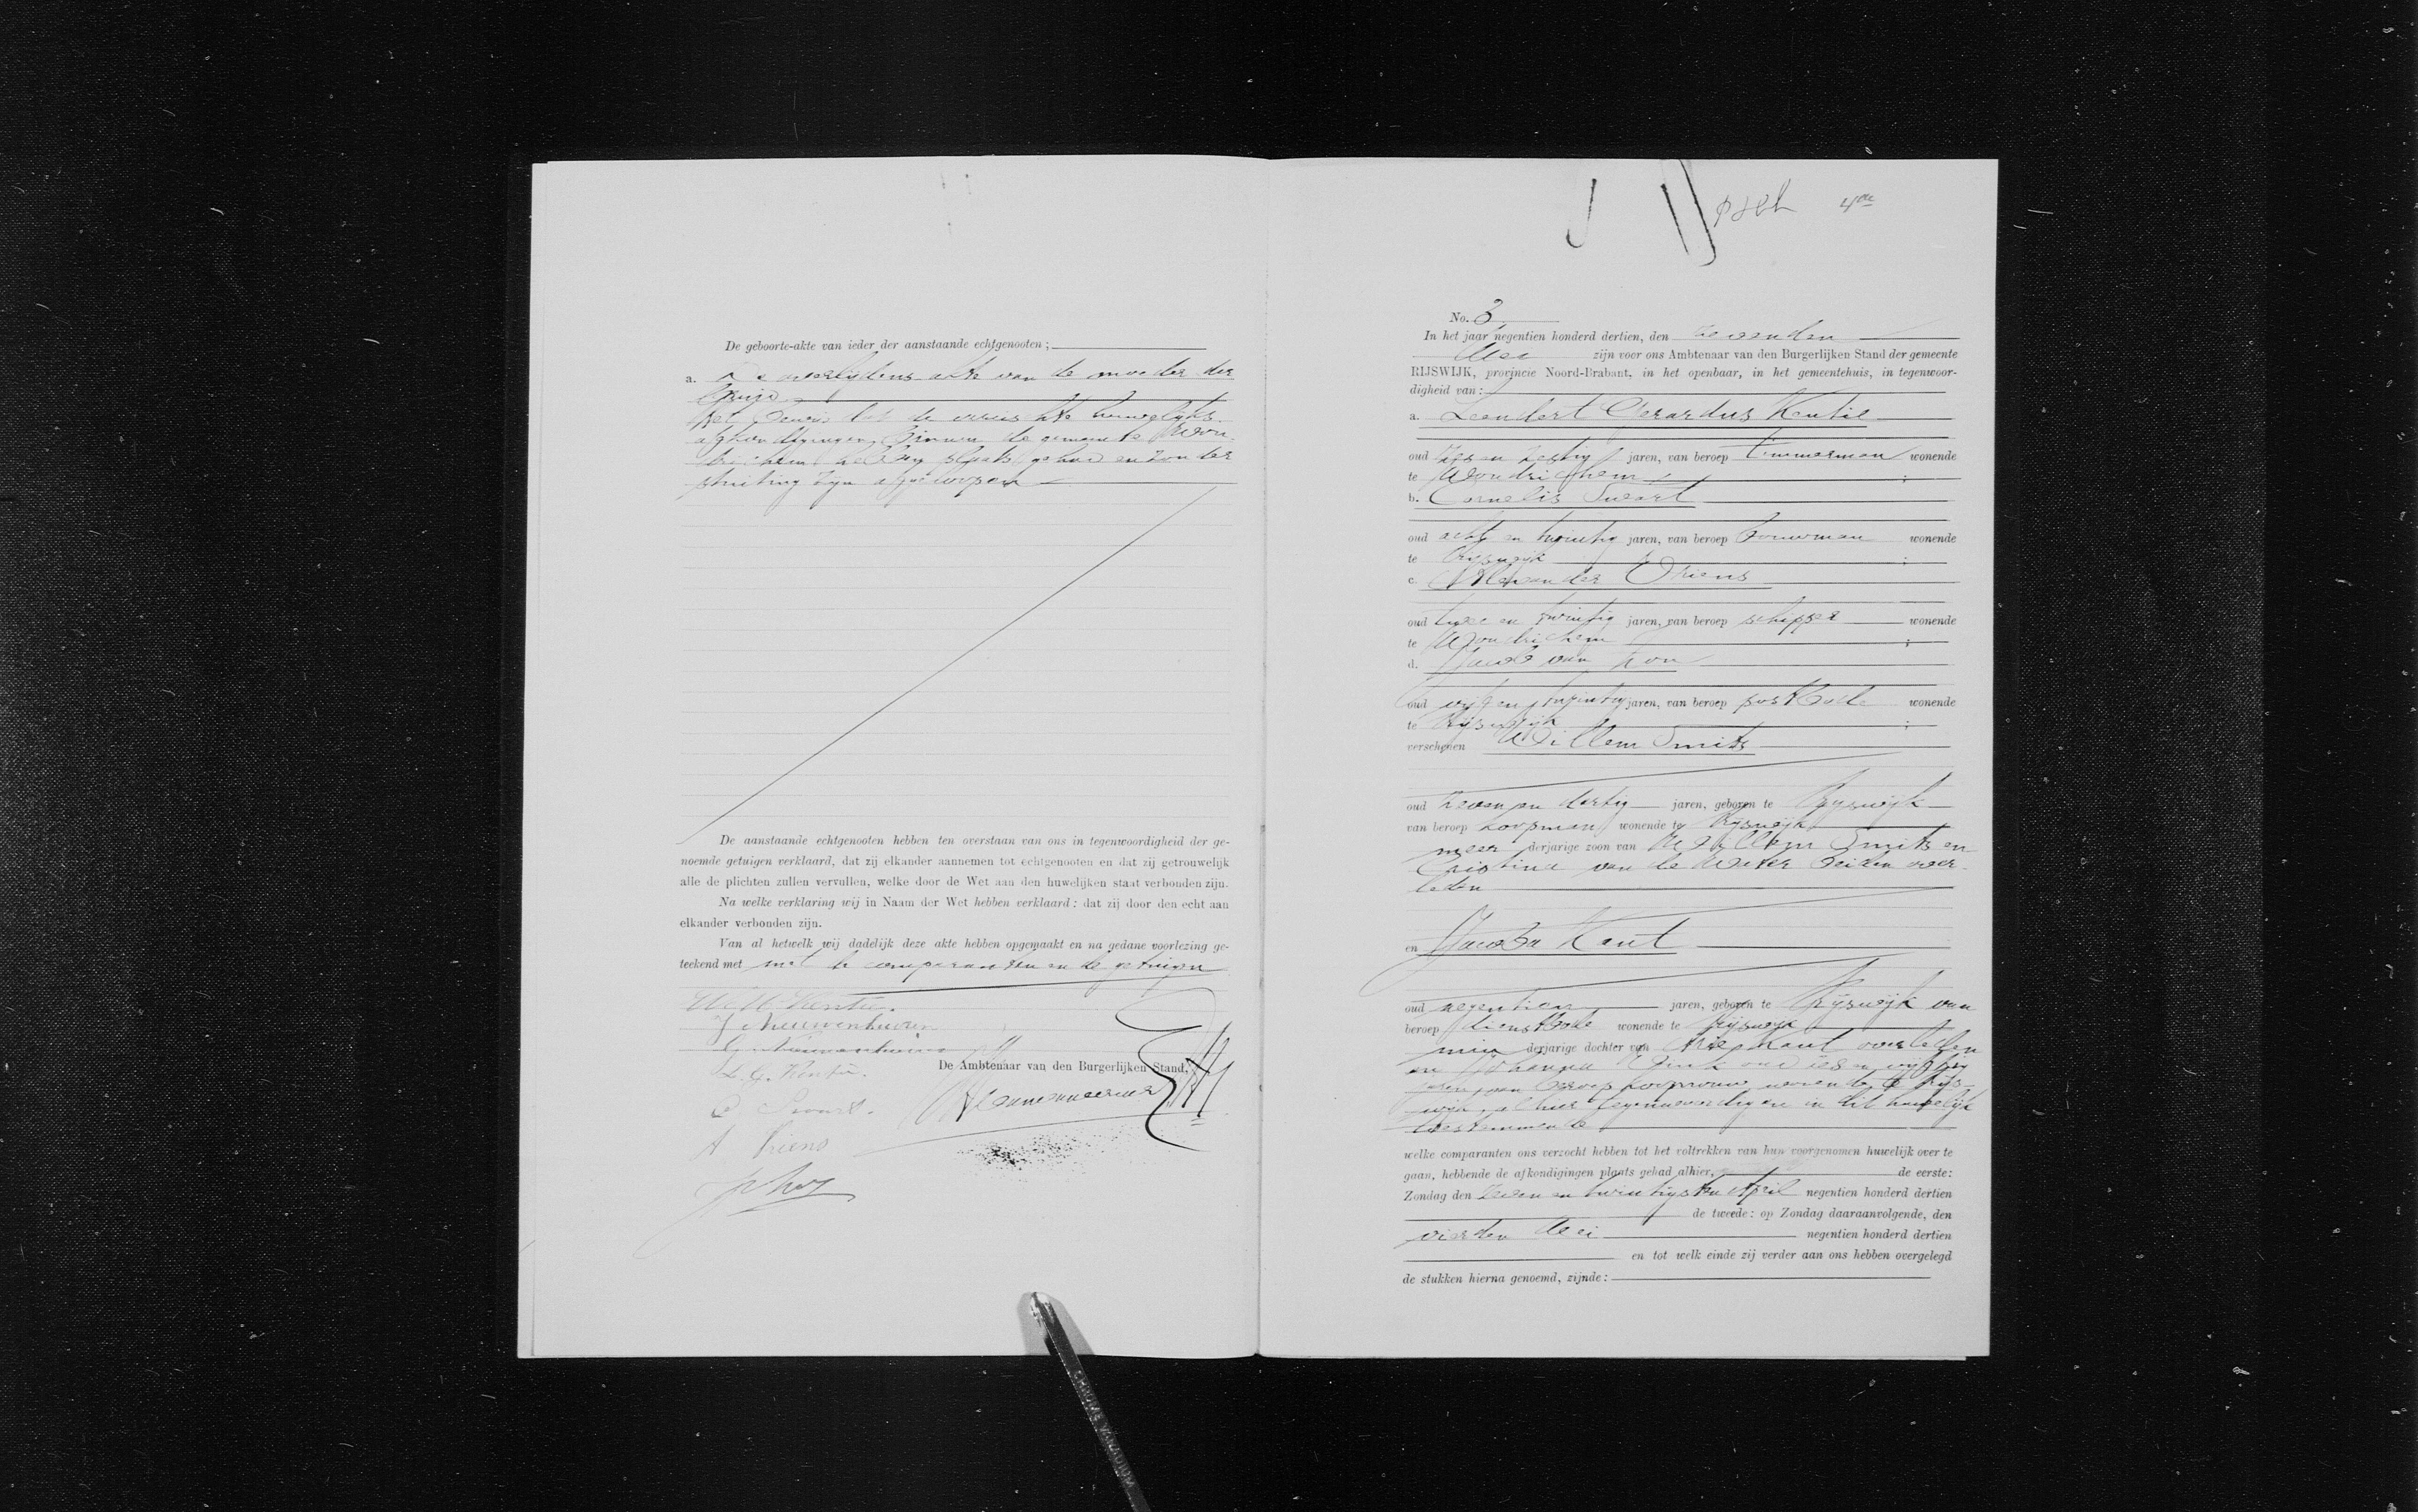 De geboorte-akte van ieder der aanstaande echtgenooten;
a. De overlijdens-akte van de moeder der
bruid
Het bewijs dat de vereischte huwelijks
afkondigingen binnen de gemeente Wou
drichem hebben plaats gehad en zonder
stuiting zijn afgeloopen
De aanstaande echtgenooten hebben ten overstaan van ons in tegenwoordigheid der ge-
noemde getuigen verklaard, dat zij elkander aannemen tot echtgenooten en dat zij getrouwelijk
alle de plichten zullen vervullen, welke door de Wet aan den huwelijken staat verbonden zijn.
Na welke verklaring wij in Naam der Wet hebben verklaard: dat zij door den echt aan
elkander verbonden zijn.
Van al hetwelk wij dadelijk deze akte hebben opgemaakt en na gedane voorlezing ge-
teekend met met de comparanten en de getuigen
Kentie.
J Nieuwenhuizen
Nieuwenhuizen
L. G. Kentie.
De Ambtenaar van den Burgerlijken Stand,
C Swart.
A Vriens
4de
No. 3
In het jaar negentien honderd dertien, den zevenden
Mei zijn voor ons Ambtenaar van den Burgerlijken Stand der gemeente
RIJSWIJK, provincie Noord-Brabant, in het openbaar, in het gemeentehuis, in tegenwoor-
digheid van:
a. Leendert Gerardus Kentie
oud zes en zestig jaren, van beroep timmerman wonende
te Woudrichem;
b. Cornelis Swart
oud acht en twintig jaren, van beroep bouwman wonende
te Rijswijk;
c. Alexander Vriens
oud twee en twintig jaren, van beroep schipper wonende
te Woudrichem;
d. Jacob van
oud vijf en twintig jaren, van beroep postbode wonende
te Rijswijk;
verschenen Willem Smits
oud zeven en dertig jaren, geboren te Rijswijk
van beroep koopman wonende te Rijswijk
meer derjarige zoon van Willem Smits en
Cristina van de Water beiden over-
leden
en Jacoba Kant
oud negentien jaren, geboren te Rijswijk van
beroep dienstbode wonende te Rijswijk
min derjarige dochter van Arie Kant overleden
en Johanna oud zes en vijftig
jaren, van beroep koopvrouw wonende te Rijs-
wijk, alhier tegenwoordig en in dit huwelijk
toestemmende
welke comparanten ons verzocht hebben tot het voltrekken van hun voorgenomen huwelijk over te
gaan, hebbende de afkondigingen plaats gehad alhier, de eerste:
Zondag den zeven en twintigsten April negentien honderd dertien
de tweede: op Zondag daaraanvolgende, den
vierden Mei negentien honderd dertien
en tot welk einde zij verder aan ons hebben overgelegd
de stukken hierna genoemd, zijnde: